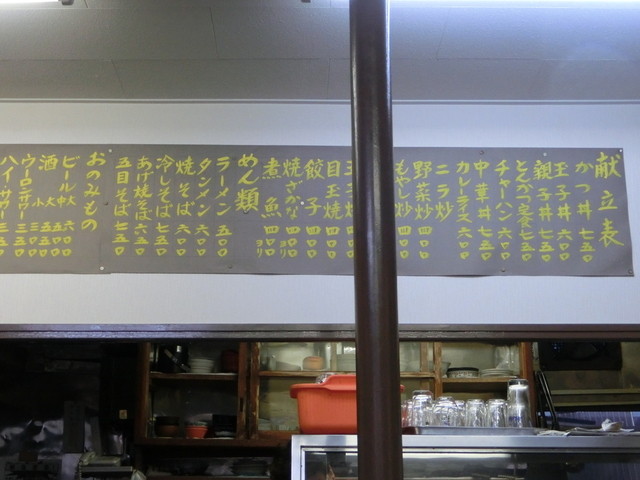 献立表
かつ丼 七五〇
玉子丼 六〇〇
親子丼 七五〇
とんかつ定食 七五〇
チャーハン 六〇〇
中華丼 七五〇
カレーライス 六〇〇
ニラ炒
野菜炒 四〇〇
もやし炒 四〇〇
目玉焼 四〇〇
餃子 四〇〇
焼ざかな 四〇〇ヨリ
煮魚 四〇〇ヨリ
めん類
ラーメン 五〇〇
タンメン 六〇〇
焼そば 六〇〇
冷しそば 七五〇
あげ焼そば 六五〇
五目そば 七五〇
おのみもの
ビール 大 中
酒 大 小
ウーロンサワー